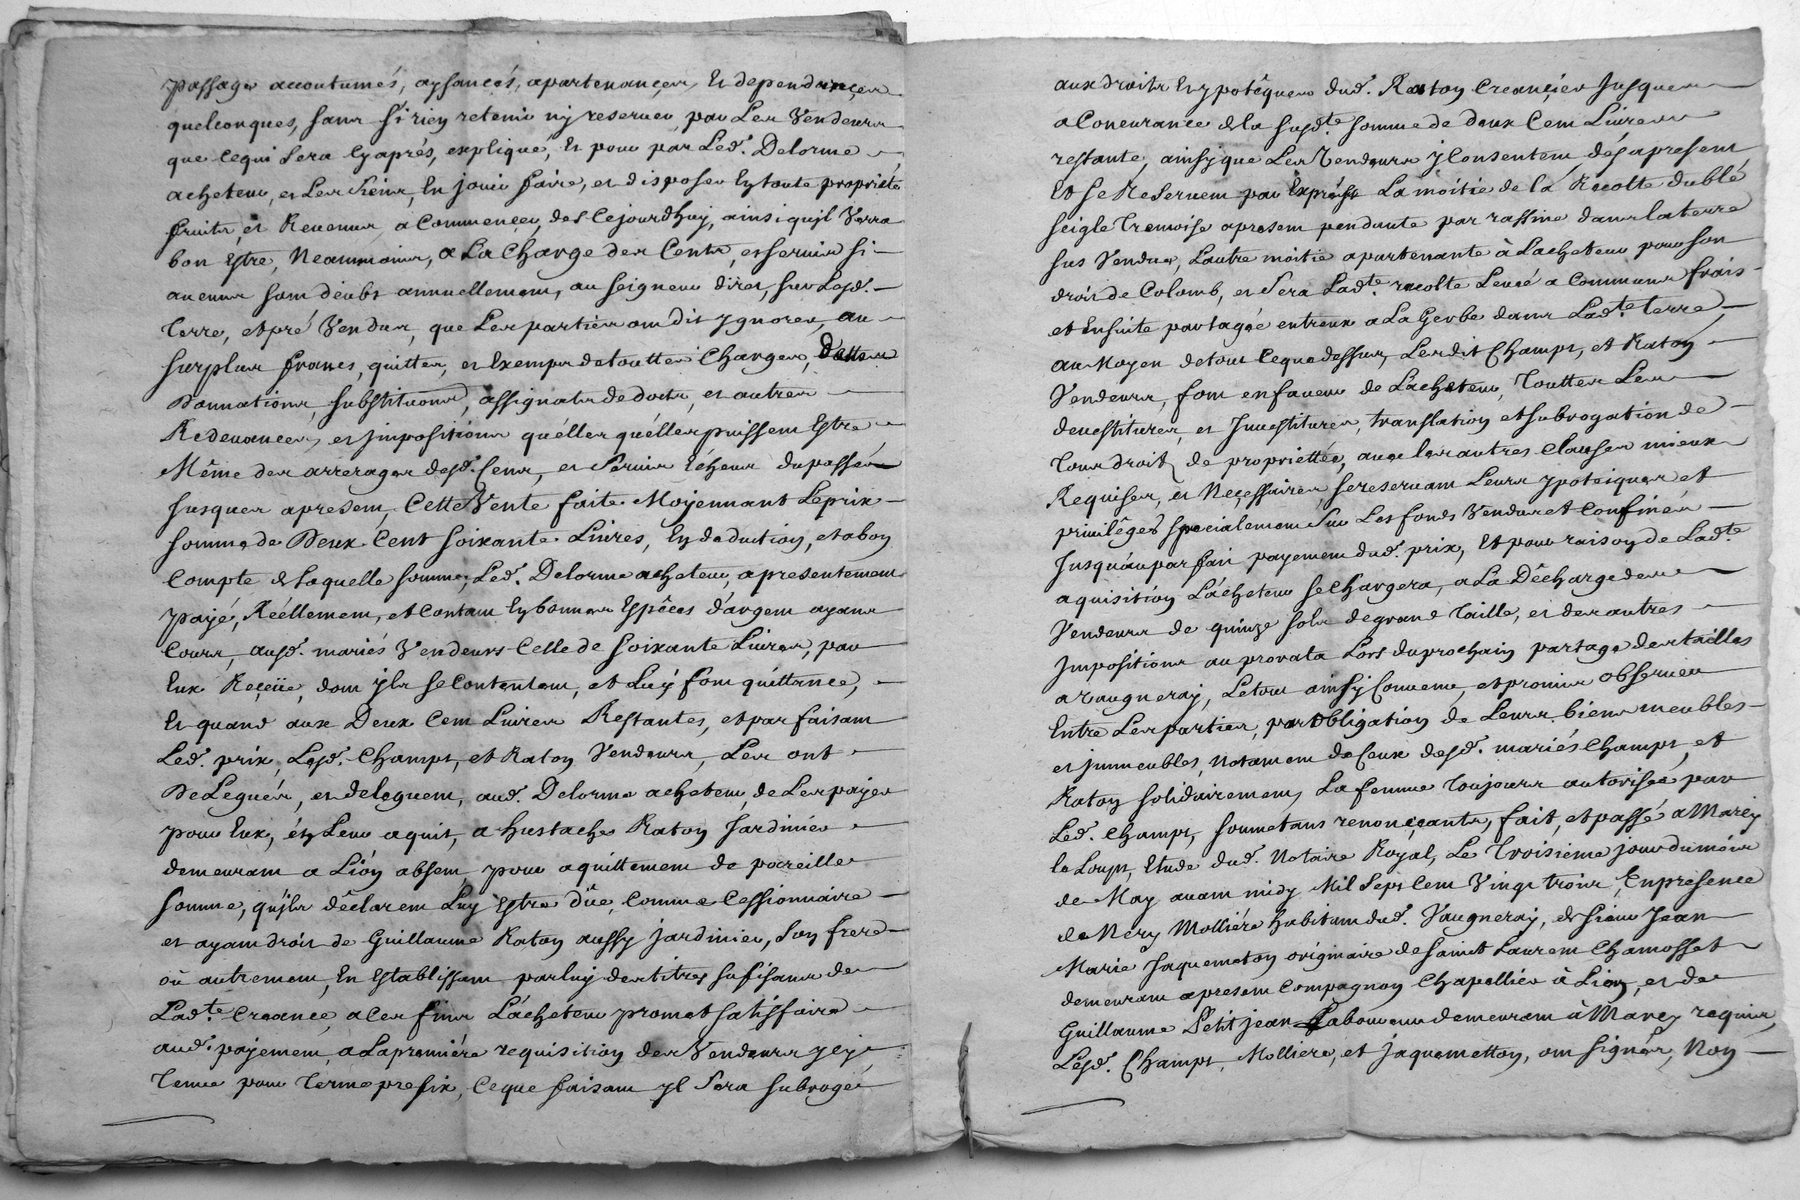 passages accoutumés, aysances, apartenances, et dependances
quelconques, sans si rien retenir ny reserver, par Les Vendeurs
que cequi sera cyaprés, expliqué, et pour par Led. Delorme
acheteur, et Les siens, En jouir faire, et disposer En toute proprieté
fruits, et Revenus, a commencer, des Cejourdhuy, ainsi quil Verra
bon Estre, Neanmoins, a La Charge des Cents, et servis si
aucuns sont deubs annuellement, au seigneur direct, sur Lesd.
terre, et pré Vendus, que Les parties ont dit ygnorer, au
surplus francs, quittes, et Exempts de touttes Charges, dettes
Donnations, substitutions, assignats de dots, et autres
Redevances, et jmpositions quélles quélles puissent Estre
Même des arrerages desd. Cens, et servis Echeus du passé
jusques apresent, Cette Vente faite Moyennant Leprix
somme de Deux Cent soixante Livres, En deduction, et a bon
Compte de laquelle somme, Led. Delorme acheteur, a presentement
payé, Réellement, et Contant En bonnes Espêces d'argent ayans
Cours, ausd. mariés Vendeurs Celle de soixante Livres, par
Eux Reçeüe, dont yls se Contentent, et Luy font quittance,
Et quand aux Deux Cent Livres Restantes, et parfaisant
Led. prix, Lesd. Champs, et Raton Vendeurs, Les ont
Delegués, et deleguent, aud. Delorme acheteur, de Les payer
pour Eux, én Leur aquit, a hustache Raton Jardinier
demeurant a Lion absent pour aquittement de pareille
somme, qujls dêclarent Luy Estre dûe, Comme Cessionnaire
et ayant droit de Guillaume Raton aussy jardinier, son frere
ou autrement, En Establissant par luy des titres sufisans de
Lad.te Creance, a Ces fins L'acheteur promet satisfaire
aud. payement, a La première requisition des Vendeurs yCy
tenue pour terme prefix, Ceque faisant yl sera subrogé
aux droits hypotêques dud. Raton Creançier jusques
a Concurance de la susd.te somme de deux Cent Livres
restante, ainsy que Les Vendeurs y Consentent dés apresent
Et se Reservent par Exprés La moitié de la Recolte du blé
seigle tremoise apresent pendante par rassine dans la terre
sus Vendue, Lautre moitié apartenante à Lacheteur pour son
droit de Colomb, et sera Lad.te recolte Levée a Communs frais
et Ensuite partagée entreux a La Gerbe dans Lad.te terre,
au Moyen de tout Ceque dessus, Lesdit Champs, et Raton
Vendeurs, font en faveur de Lacheteur, touttes Les
devestitures, et jnvestitures, translation et subrogation de
tous droits de proprietté, avec les autres clauses mieux
Requises, et Neçessaires, se reservant Leurs ypoteques et
privilêges specialement sur Les fonds Vendus et Confinés
Jusquáu parfait payement dud. prix, Et pour raison de Lad.te
aquisition L'acheteur se Chargera, a La Dêcharge des
Vendeurs de quinze sols de grand taille, et des autres
jmpositions au prorata Lors du prochain partage des tailles
a Vaugneray, Letout ainsy Convenu, et promis observer
Entre Les parties, par obligation de Leurs biens meubles
et jmmeubles, Notament de Ceux desd. mariés Champs, et
Raton solidairement, La femme toujours autorisée par
Led. Champs, soumetans renonçeants, fait, et passé a Marcy
le Loup, Etude dud. Notaire Royal, Le troisieme jour du mois
de May avant midy Mil sept Cent Vingt trois, En presence
de Nery Molliére habitant dud. Vaugneray, de sieur Jean
Marie Jaquemeton originaire de saint Laurent Chamosset
demeurant apresent Compagnon Chapellier à Lion, et de
Guillaume Petitjean Laboureur demeurant à Marcy requis,
Lesd. Champs, Molliere, et Jaquemetton, ont signés, Non